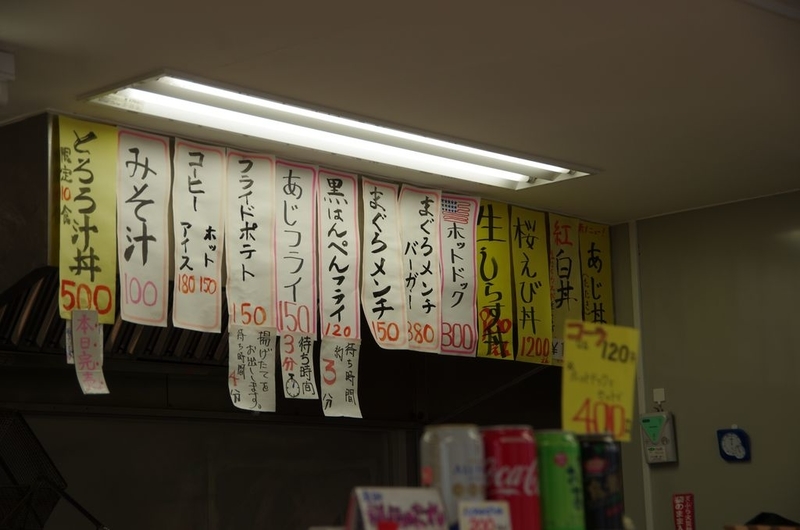 とろろ汁丼
限定10食
500
本日完売
みそ汁
100
コーヒー
ホット
アイス
180 150
フライドポテト
150
揚げたてを
お出しします。
待ち時間
4分
あじフライ
150
待ち時間
3分
黒はんぺんフライ
120
待ち時間
約3分
まぐろメンチ
150
まぐろメンチ
バーガー
380
ホットドック
300
生しらす丼
桜えび丼
1200
紅白丼
あじ丼
コーラ120
400
Coca
200